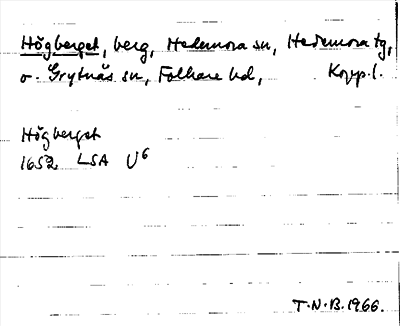 Högberget, berg, Hedemora sn, Hedemora tg,
o. Grytnäs sn, Folkare hd, Kopp. l.
Högberget
1652 LSA U6
T.N.B. 1966.